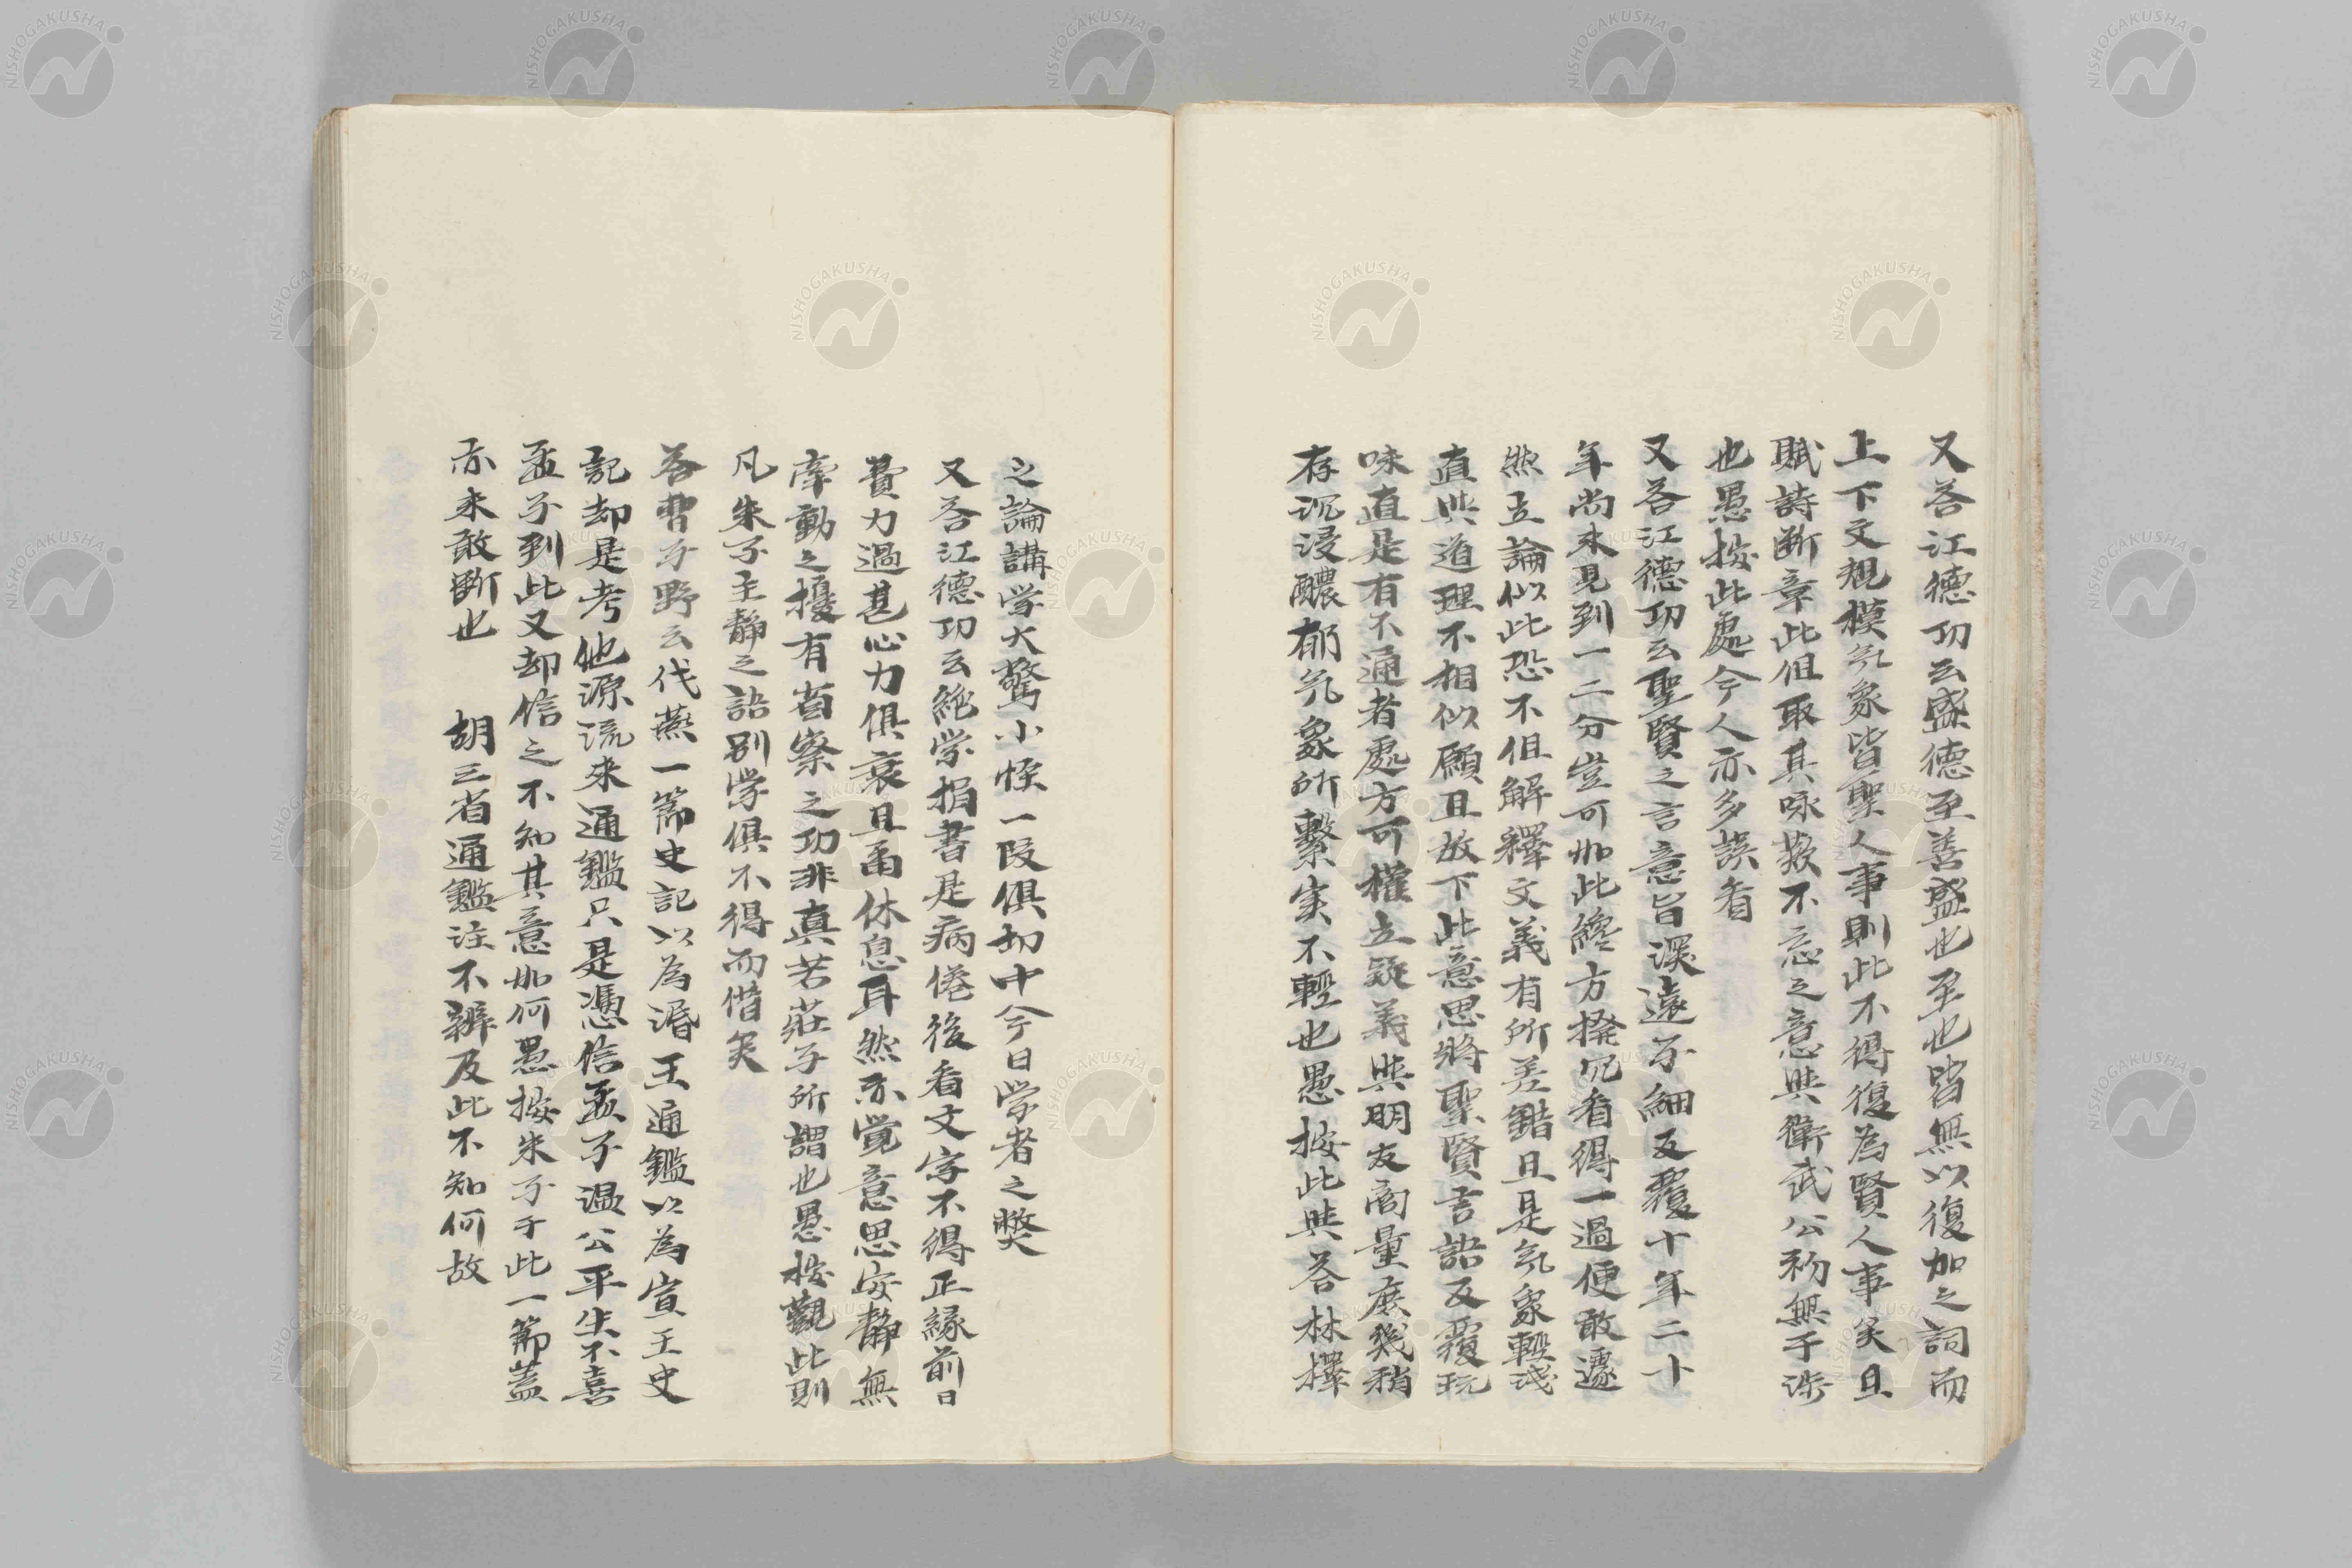 又答江德功云盛德至善盛也至也皆無以復加之詞而
上下文規模気象皆聖人事則此不得復為賢人事矣且
賦詩断章此但取其咏歎不忘之意與衛武公初無干涉
也愚按此處今人亦多誤看
又答江德功云聖賢之言意旨深遠子細反覆十年二十
年尚未見到一二分豈可如此纔方撥冗看得一過便敢遽
然立論似此恐不但解釋文義有所差錯且是気象輕淺
直與道理不相似願且放下此意思將聖賢言語反覆玩
味直是有不通者處方可權立疑義與朋友商量庶幾稍
存沉浸醲郁気象所繫実不輕也愚按此與答林擇
之論講学大驚小怪一段俱切中今日学者之獘
又答江德功云絕学捐書是病倦後看文字不得正緣前日
費力過甚心力俱衰且爾休息耳然亦覚意思安靜無
牽動之擾有省察之功非真若莊子所謂也愚按觀此則
凡朱子主靜之語別学俱不得而借矣
答曹子野云伐燕一篇史記以為湣王通鑑以為宣王史
記却是考他源流来通鑑只是憑信孟子温公平生不喜
孟子到此又却信之不知其意如何愚按朱子于此一篇蓋
亦未敢断也 胡三省通鑑注不辨及此不知何故
NISHOGAKUSHA